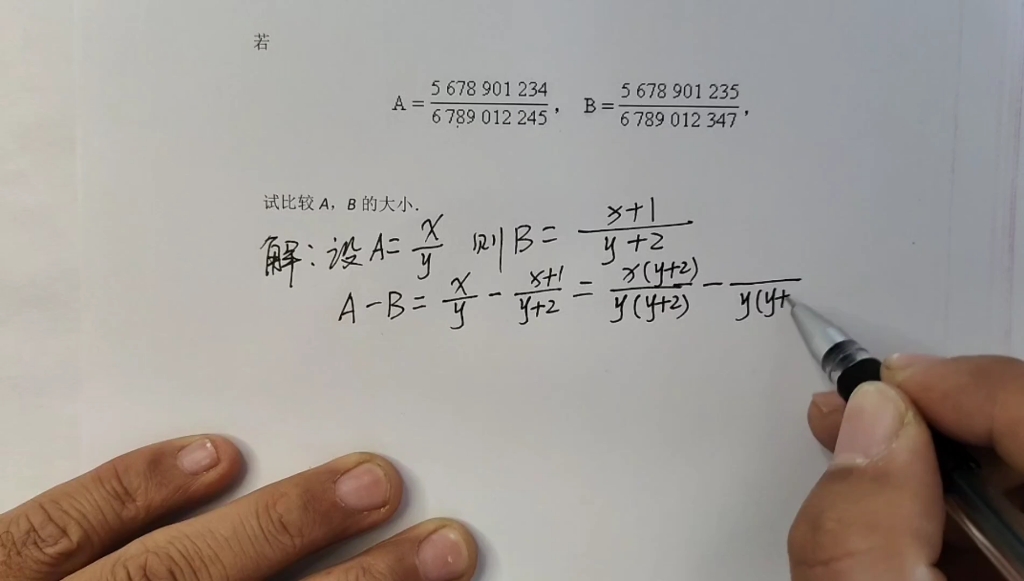 若
A = 5 678 901 234 / 6 789 012 245 , B = 5 678 901 235 / 6 789 012 347 ,
试比较 A, B 的大小.
解: 设 A = x / y 则 B = x+1 / y+2
A - B = x / y - x+1 / y+2 = x(y+2) / y(y+2) - / y(y+